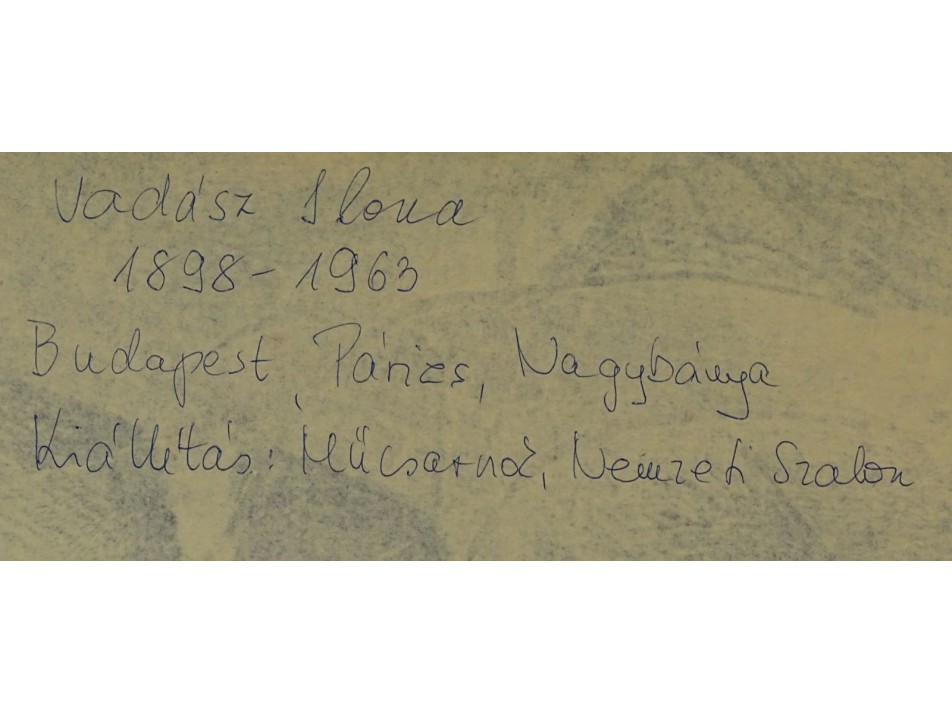 Vadász Ilona
1898-1963
Budapest, Párizs, Nagybánya
Kiállítás: Műcsarnok, Nemzeti Szalon